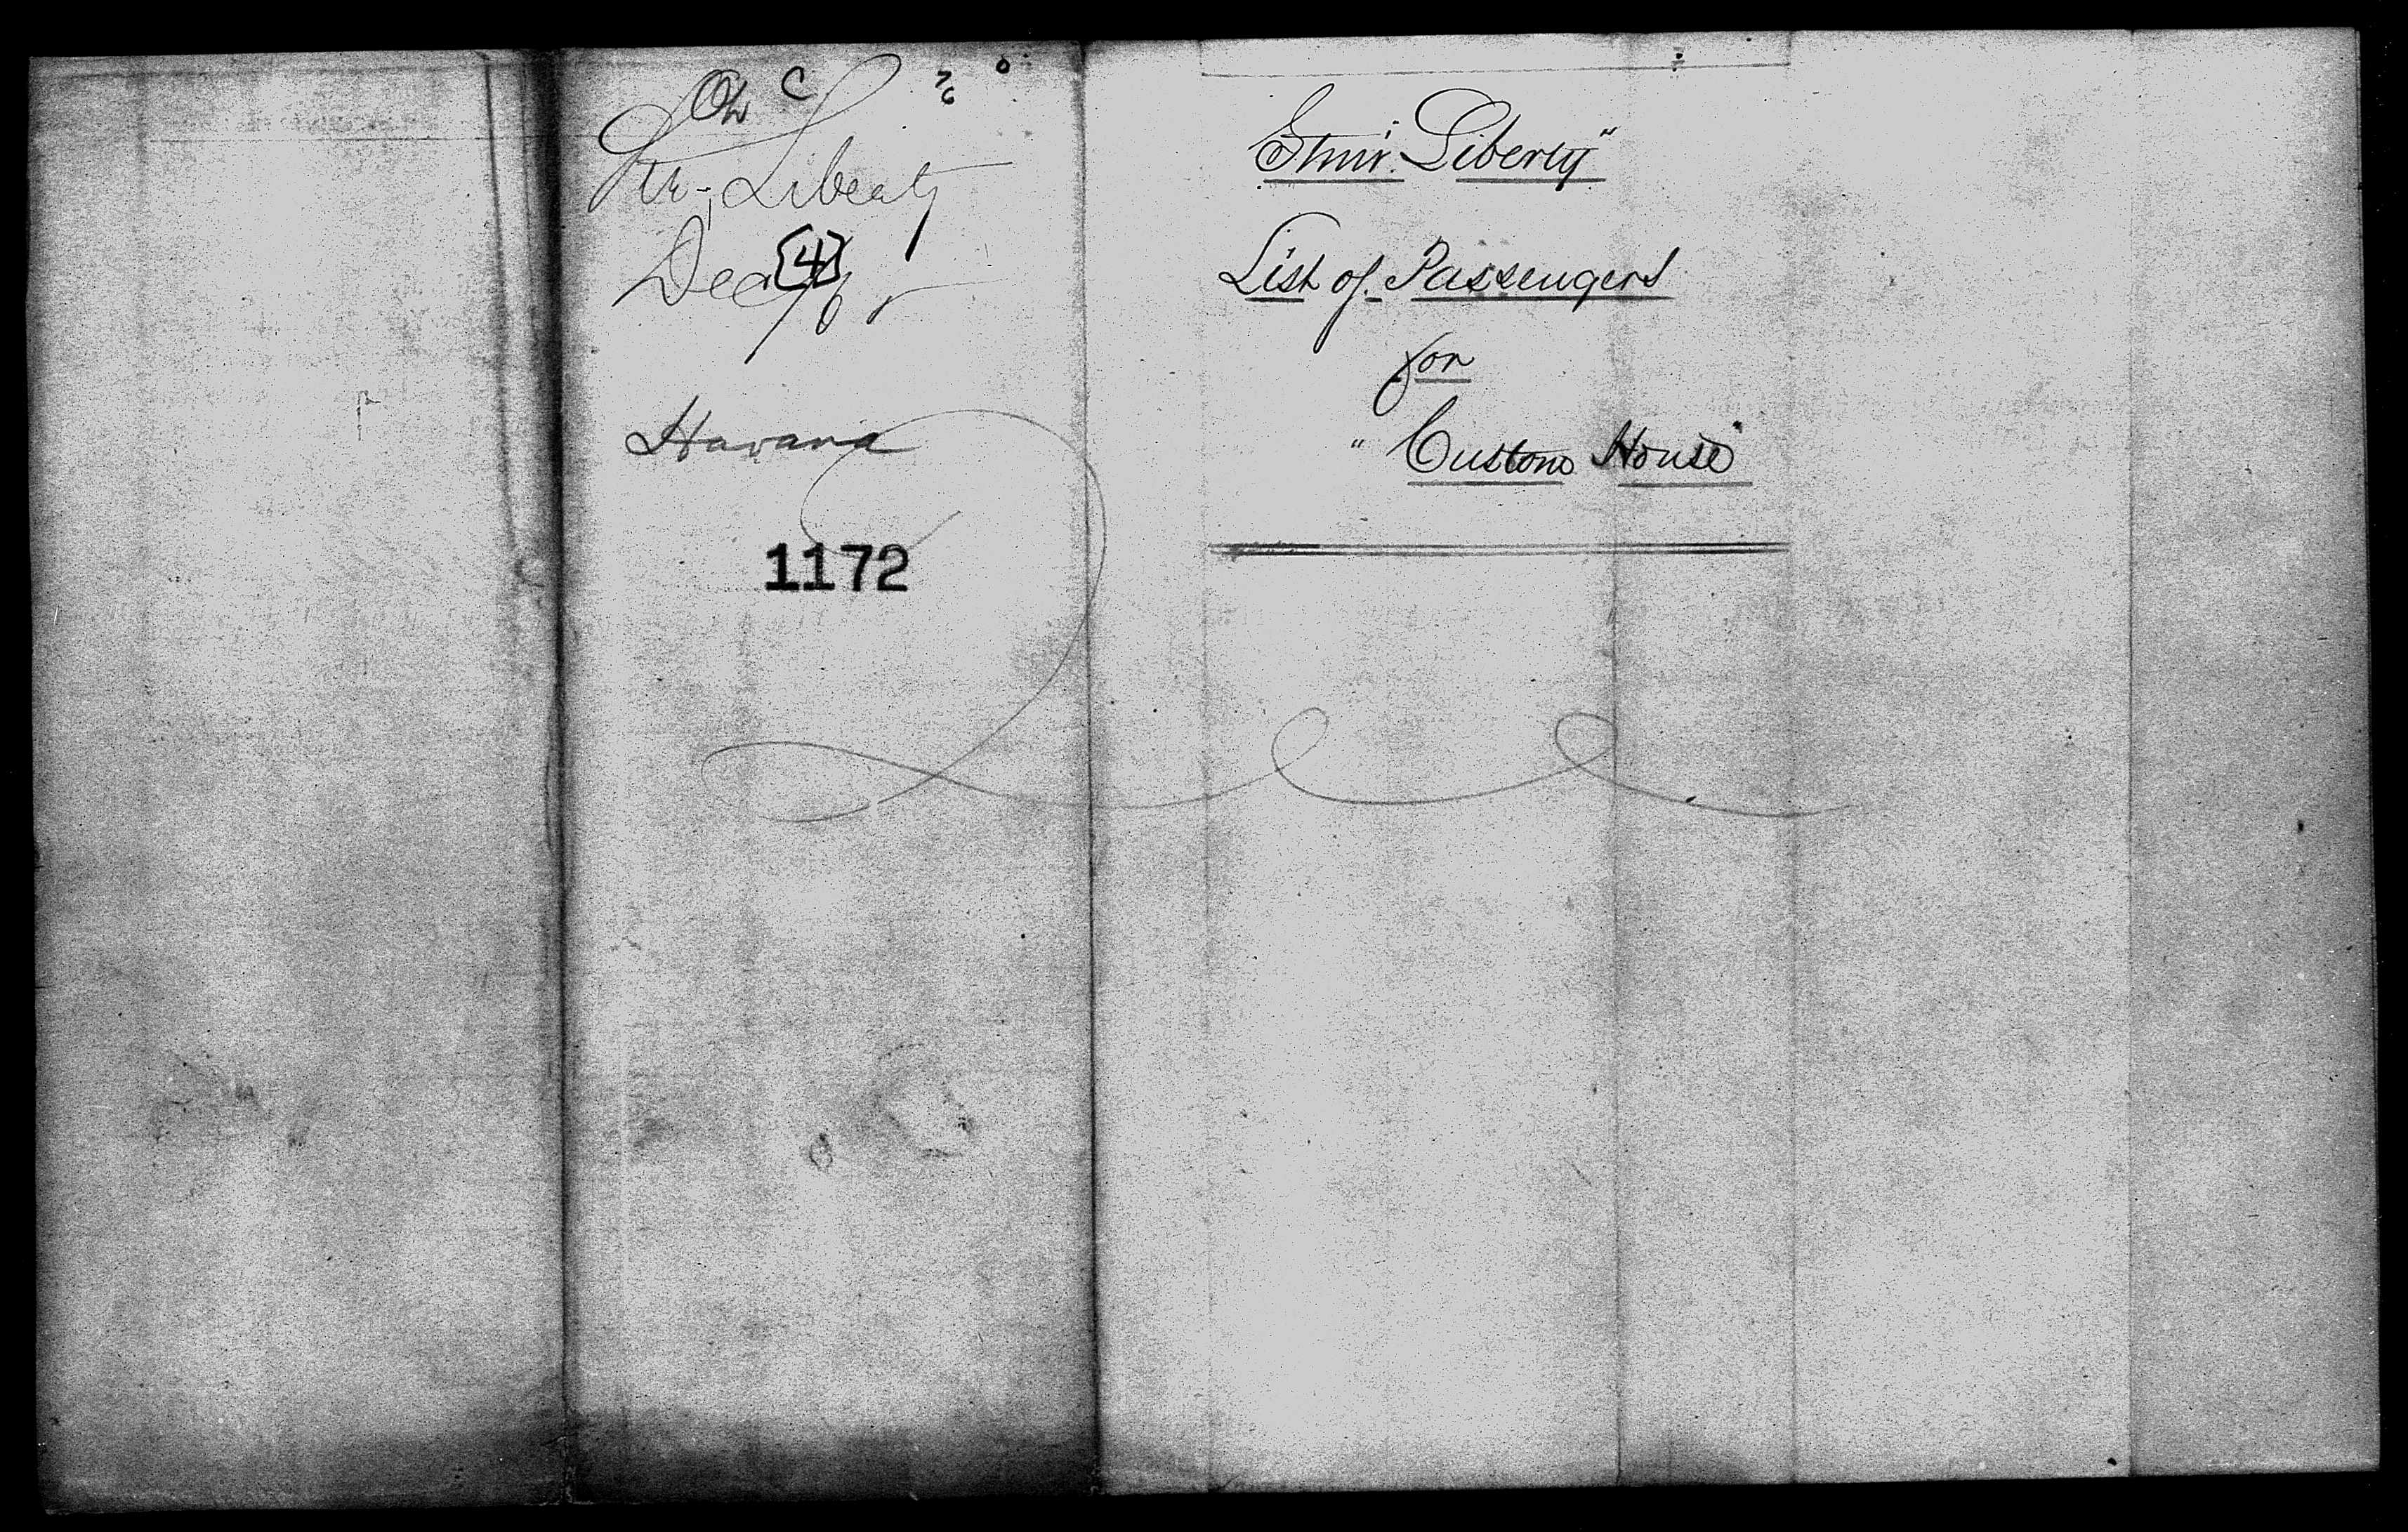 Str. Liberty
Dec [4]
Havana
1172
Stmr. "Liberty"
List of Passengers
for
"Custom House"